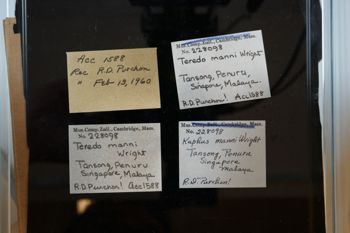 Acc 1588
Rec R.D. Purchon
" Feb 13, 1960
Mus. Comp. Zoöl., Cambridge, Mass.
No. 228098
Teredo manni Wright
Tansong, Penuru,
Singapore, Malaya.
R.D. Purchon! Acc 1588
Mus. Comp. Zoöl., Cambridge, Mass.
No. 228098
Teredo manni
Wright
Tansong, Penuru
Singapore, Malaya
R.D. Purchon! Acc 1588
Mus. Comp. Zoöl., Cambridge, Mass.
No. 228098
Kuphus manni Wright
Tansong, Penuru
Singapore
Malaya
R.D. Purchon!